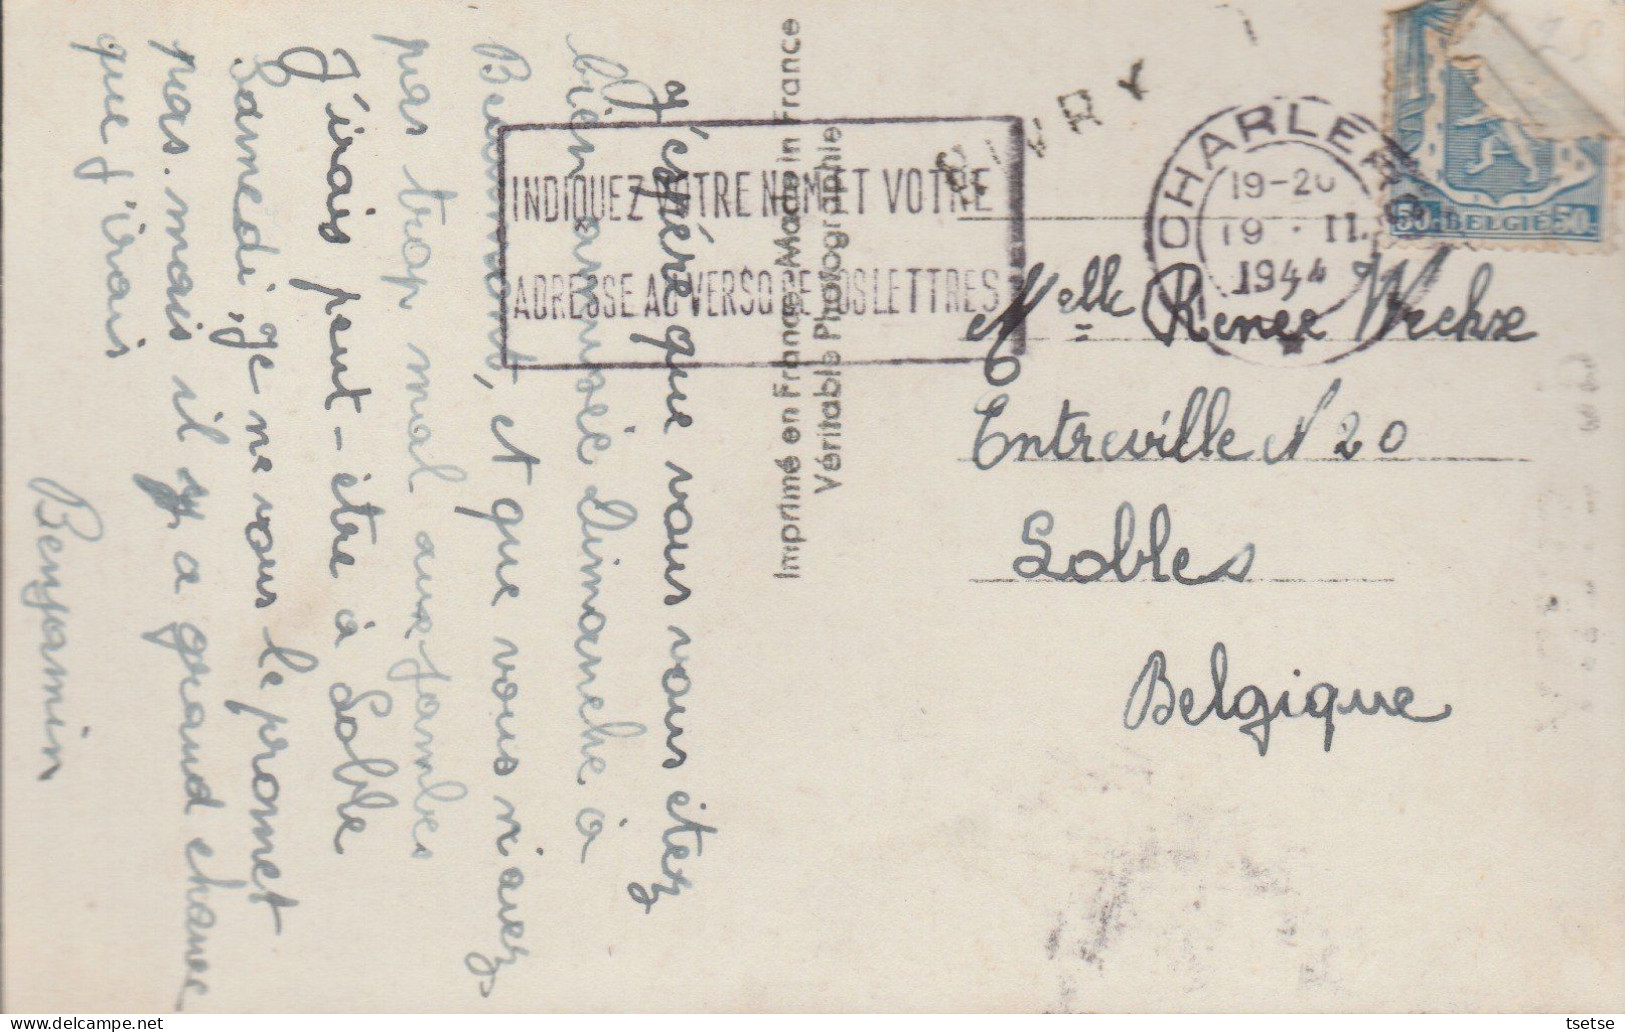 J'espère que vous vous êtez
bien amusée Dimanche à
Beaumont, et que vous n'avez
pas trop mal aux jambes
J'irais peut-être à Lobbe
Samedi, je ne vous le promet
pas. mais il y a grand chance
que j'irais
Benjamin
Imprimé en France Made in France
Véritable Photographie
INDIQUEZ VOTRE NOM ET VOTRE
ADRESSE AU VERSO DE VOS LETTRES
GIVRY
CHARLEROI
19-20
19 · II.
1944
50c BELGIË 50c
Melle Renée
Entreville N 20
Lobbes
Belgique
delcampe.net
tsetse